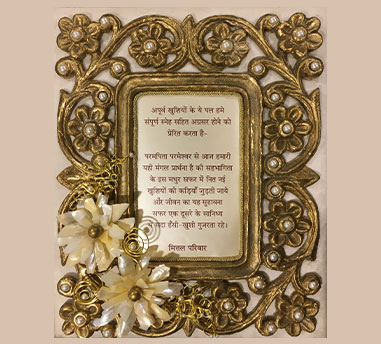 अपूर्व खुशियों के ये पल हमे
संपूर्ण स्नेह सहित अग्रसर होने को
प्रेरित करता है~
परमपिता परमेश्वर से आज हमारी
यही मंगल प्रार्थना है की सहभागिता
के इस मधुर सफर में नित नई
खुशियों की कड़ियाँ जुड़ती जाये
और जीवन का यह सुहावना
सफर एक दूसरे के सानिध्य
हँसी-खुशी गुजरता रहे।
मित्तल परिवार